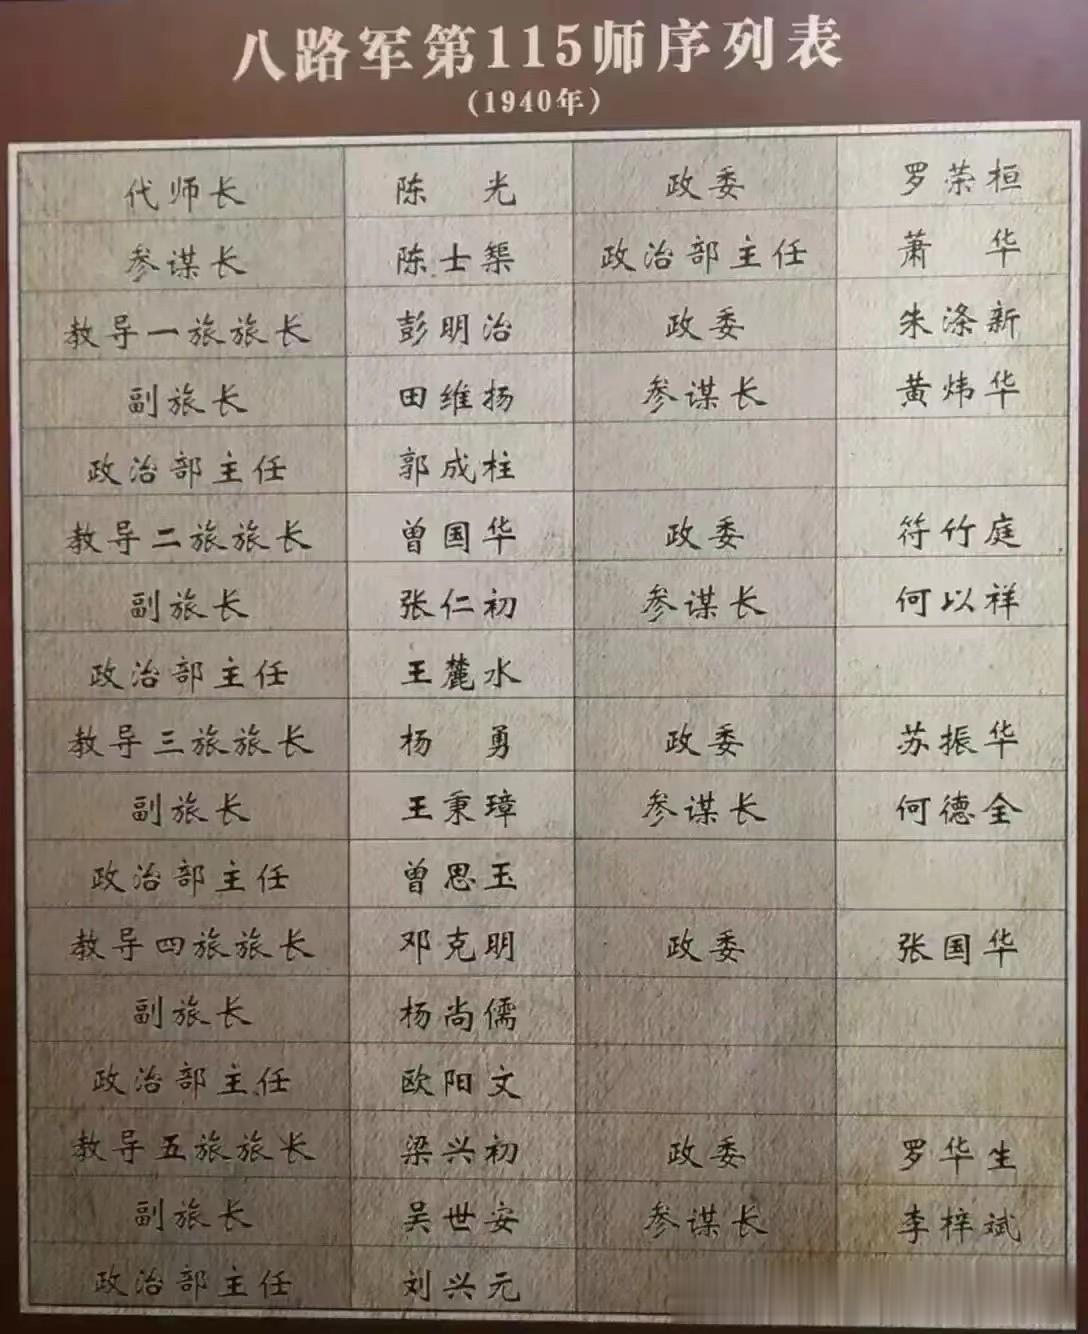 八路军第115师序列表
(1940年)
代师长 陈光 政委 罗荣桓
参谋长 陈士榘 政治部主任 萧华
教导一旅旅长 彭明治 政委 朱涤新
副旅长 田维扬 参谋长 黄炜华
政治部主任 郭成柱
教导二旅旅长 曾国华 政委 符竹庭
副旅长 张仁初 参谋长 何以祥
政治部主任 王麓水
教导三旅旅长 杨勇 政委 苏振华
副旅长 王秉璋 参谋长 何德全
政治部主任 曾思玉
教导四旅旅长 邓克明 政委 张国华
副旅长 杨尚儒
政治部主任 欧阳文
教导五旅旅长 梁兴初 政委 罗华生
副旅长 吴世安 参谋长 李梓斌
政治部主任 刘兴元